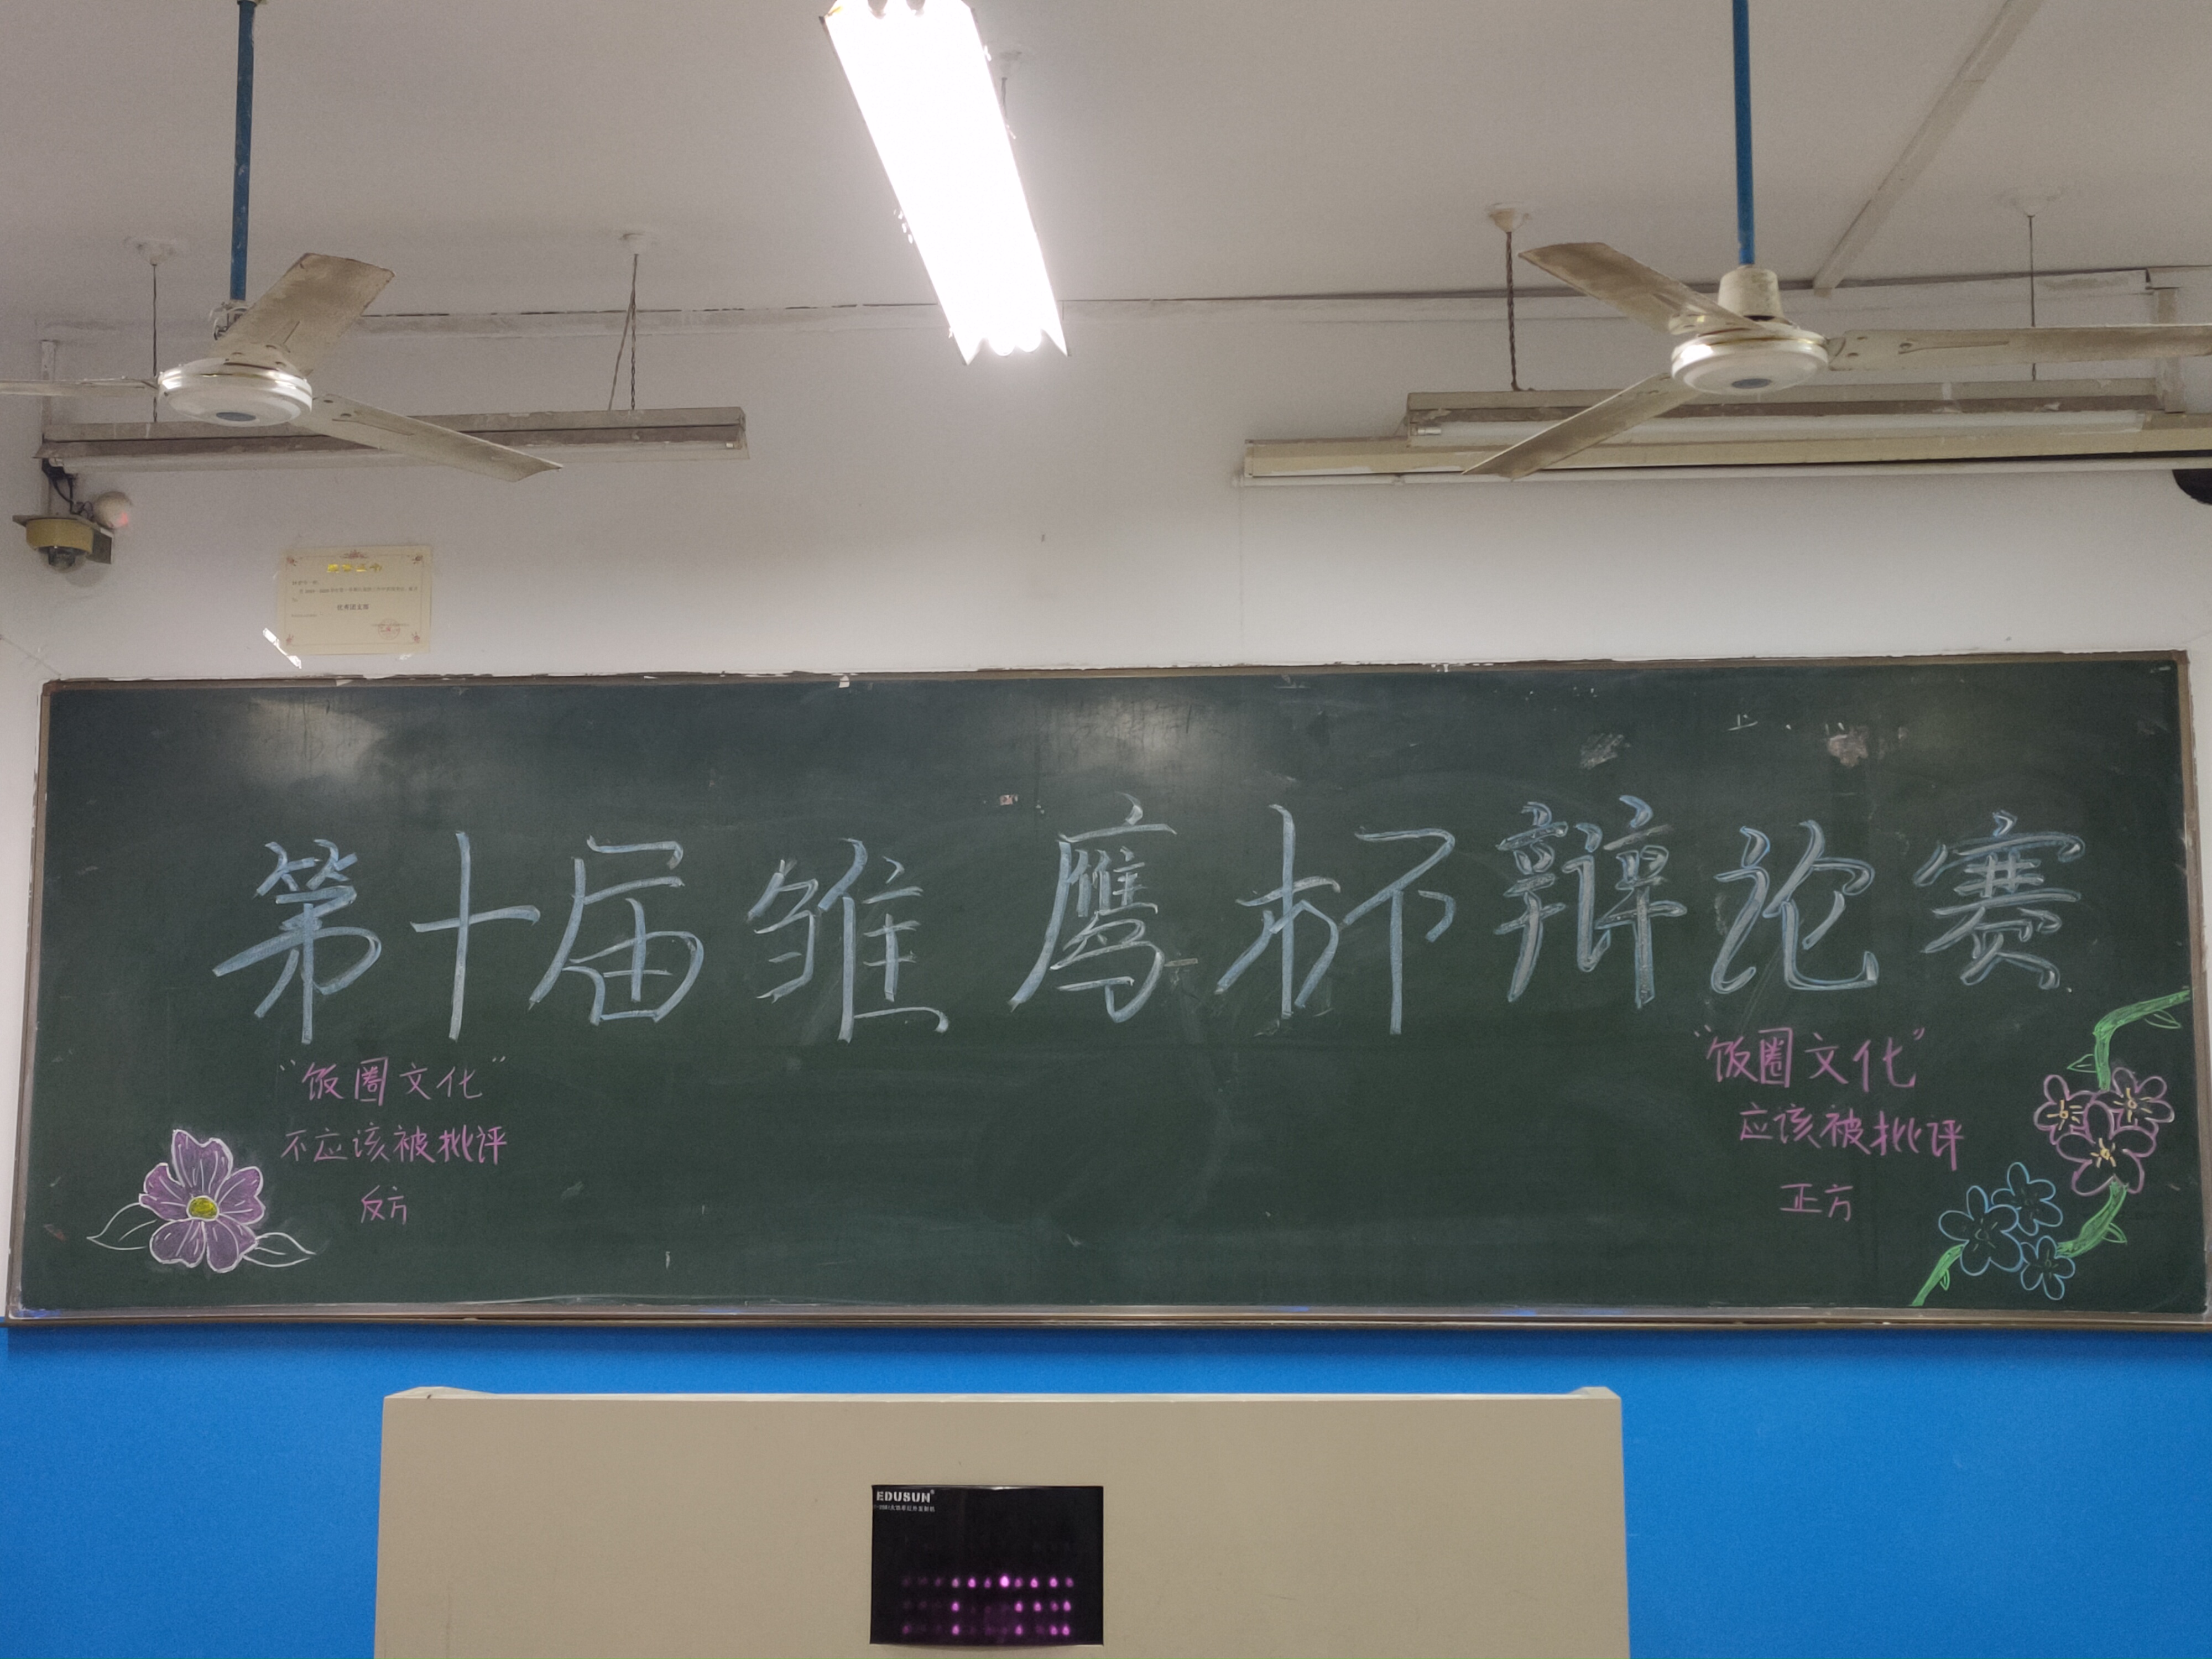 优秀团支部
第十届雏鹰杯辩论赛
“饭圈文化”
不应该被批评
反方
“饭圈文化”
应该被批评
正方
EDUSUN